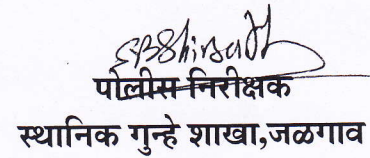 पोलीस निरीक्षक
स्थानिक गुन्हे शाखा,जळगाव